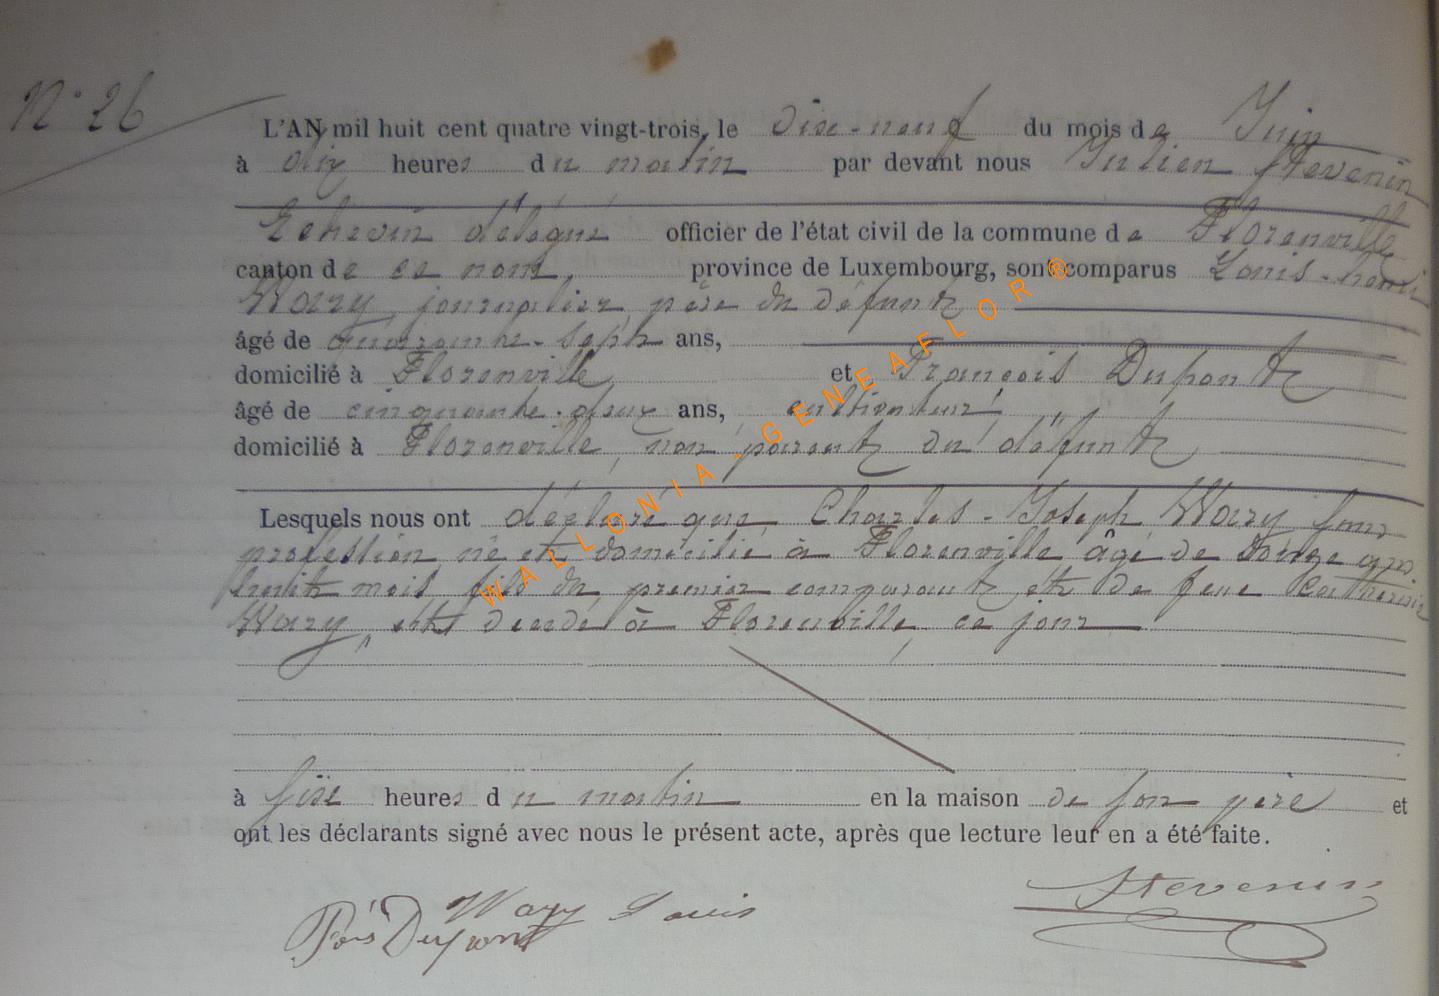 N° 26
L'AN mil huit cent quatre vingt-trois, le dixe-neuf du mois de Juin
à dix heures du matin par devant nous Julien Stevenin
Echevin délégué officier de l'état civil de la commune de Florenville
canton de ce nom, province de Luxembourg, sont comparus Louis-henri
Wary, journalier, père du défunt
âgé de quarante-sept ans,
domicilié à Florenville, et François Dupont
âgé de cinquante-deux ans, cultivateur,
domicilié à Florenville, non parent du défunt
Lesquels nous ont déclaré que Charles-Joseph Wary sans
profession, né et domicilié à Florenville âgé de ans
huit mois fils du premier comparant et de feue Catherine
Wary, est décédé à Florenville, ce jour
à six heures du matin en la maison de son père et
ont les déclarants signé avec nous le présent acte, après que lecture leur en a été faite.
Wary Louis Stevenin
Dupont
WALLONIA - GENEAFLOR ®